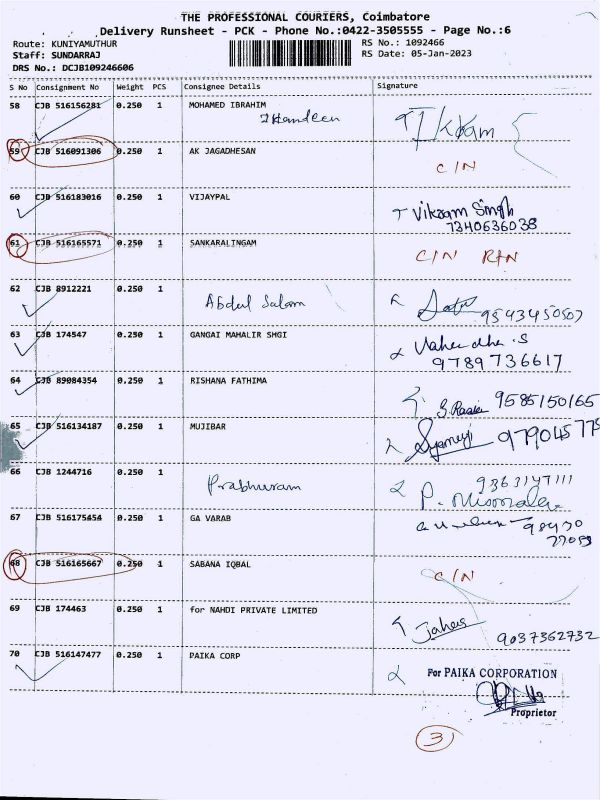 THE PROFESSIONAL COURIERS, Coimbatore
Delivery Runsheet - PCK - Phone No.:0422-3505555 - Page No.:6
Route: KUNIYAMUTHUR
RS No.: 1092466
Staff: SUNDARRAJ
RS Date: 05-Jan-2023
DRS No.: DCJB109246606
S No Consignment No Weight PCS Consignee Details Signature
58 CJB 516156281 0.250 1 MOHAMED IBRAHIM
59 CJB 516091306 0.250 1 AK JAGADHESAN
C/N
60 CJB 516183016 0.250 1 VIJAYPAL
Vikram Singh
7340636038
61 CJB 516165571 0.250 1 SANKARALINGAM
C/N
62 CJB 8912221 0.250 1
Abdul Salam
9543450507
63 CJB 174547 0.250 1 GANGAI MAHALIR SHGI
9789736617
64 CJB 89084354 0.250 1 RISHANA FATHIMA
9585150165
65 CJB 516134187 0.250 1 MUJIBAR
66 CJB 1244716 0.250 1
Prabhuram
9363147111
67 CJB 516175454 0.250 1 GA VARAB
68 CJB 516165667 0.250 1 SABANA IQBAL
C/N
69 CJB 174463 0.250 1 for NAHDI PRIVATE LIMITED
9037362732
70 CJB 516147477 0.250 1 PAIKA CORP
For PAIKA CORPORATION
Proprietor
3